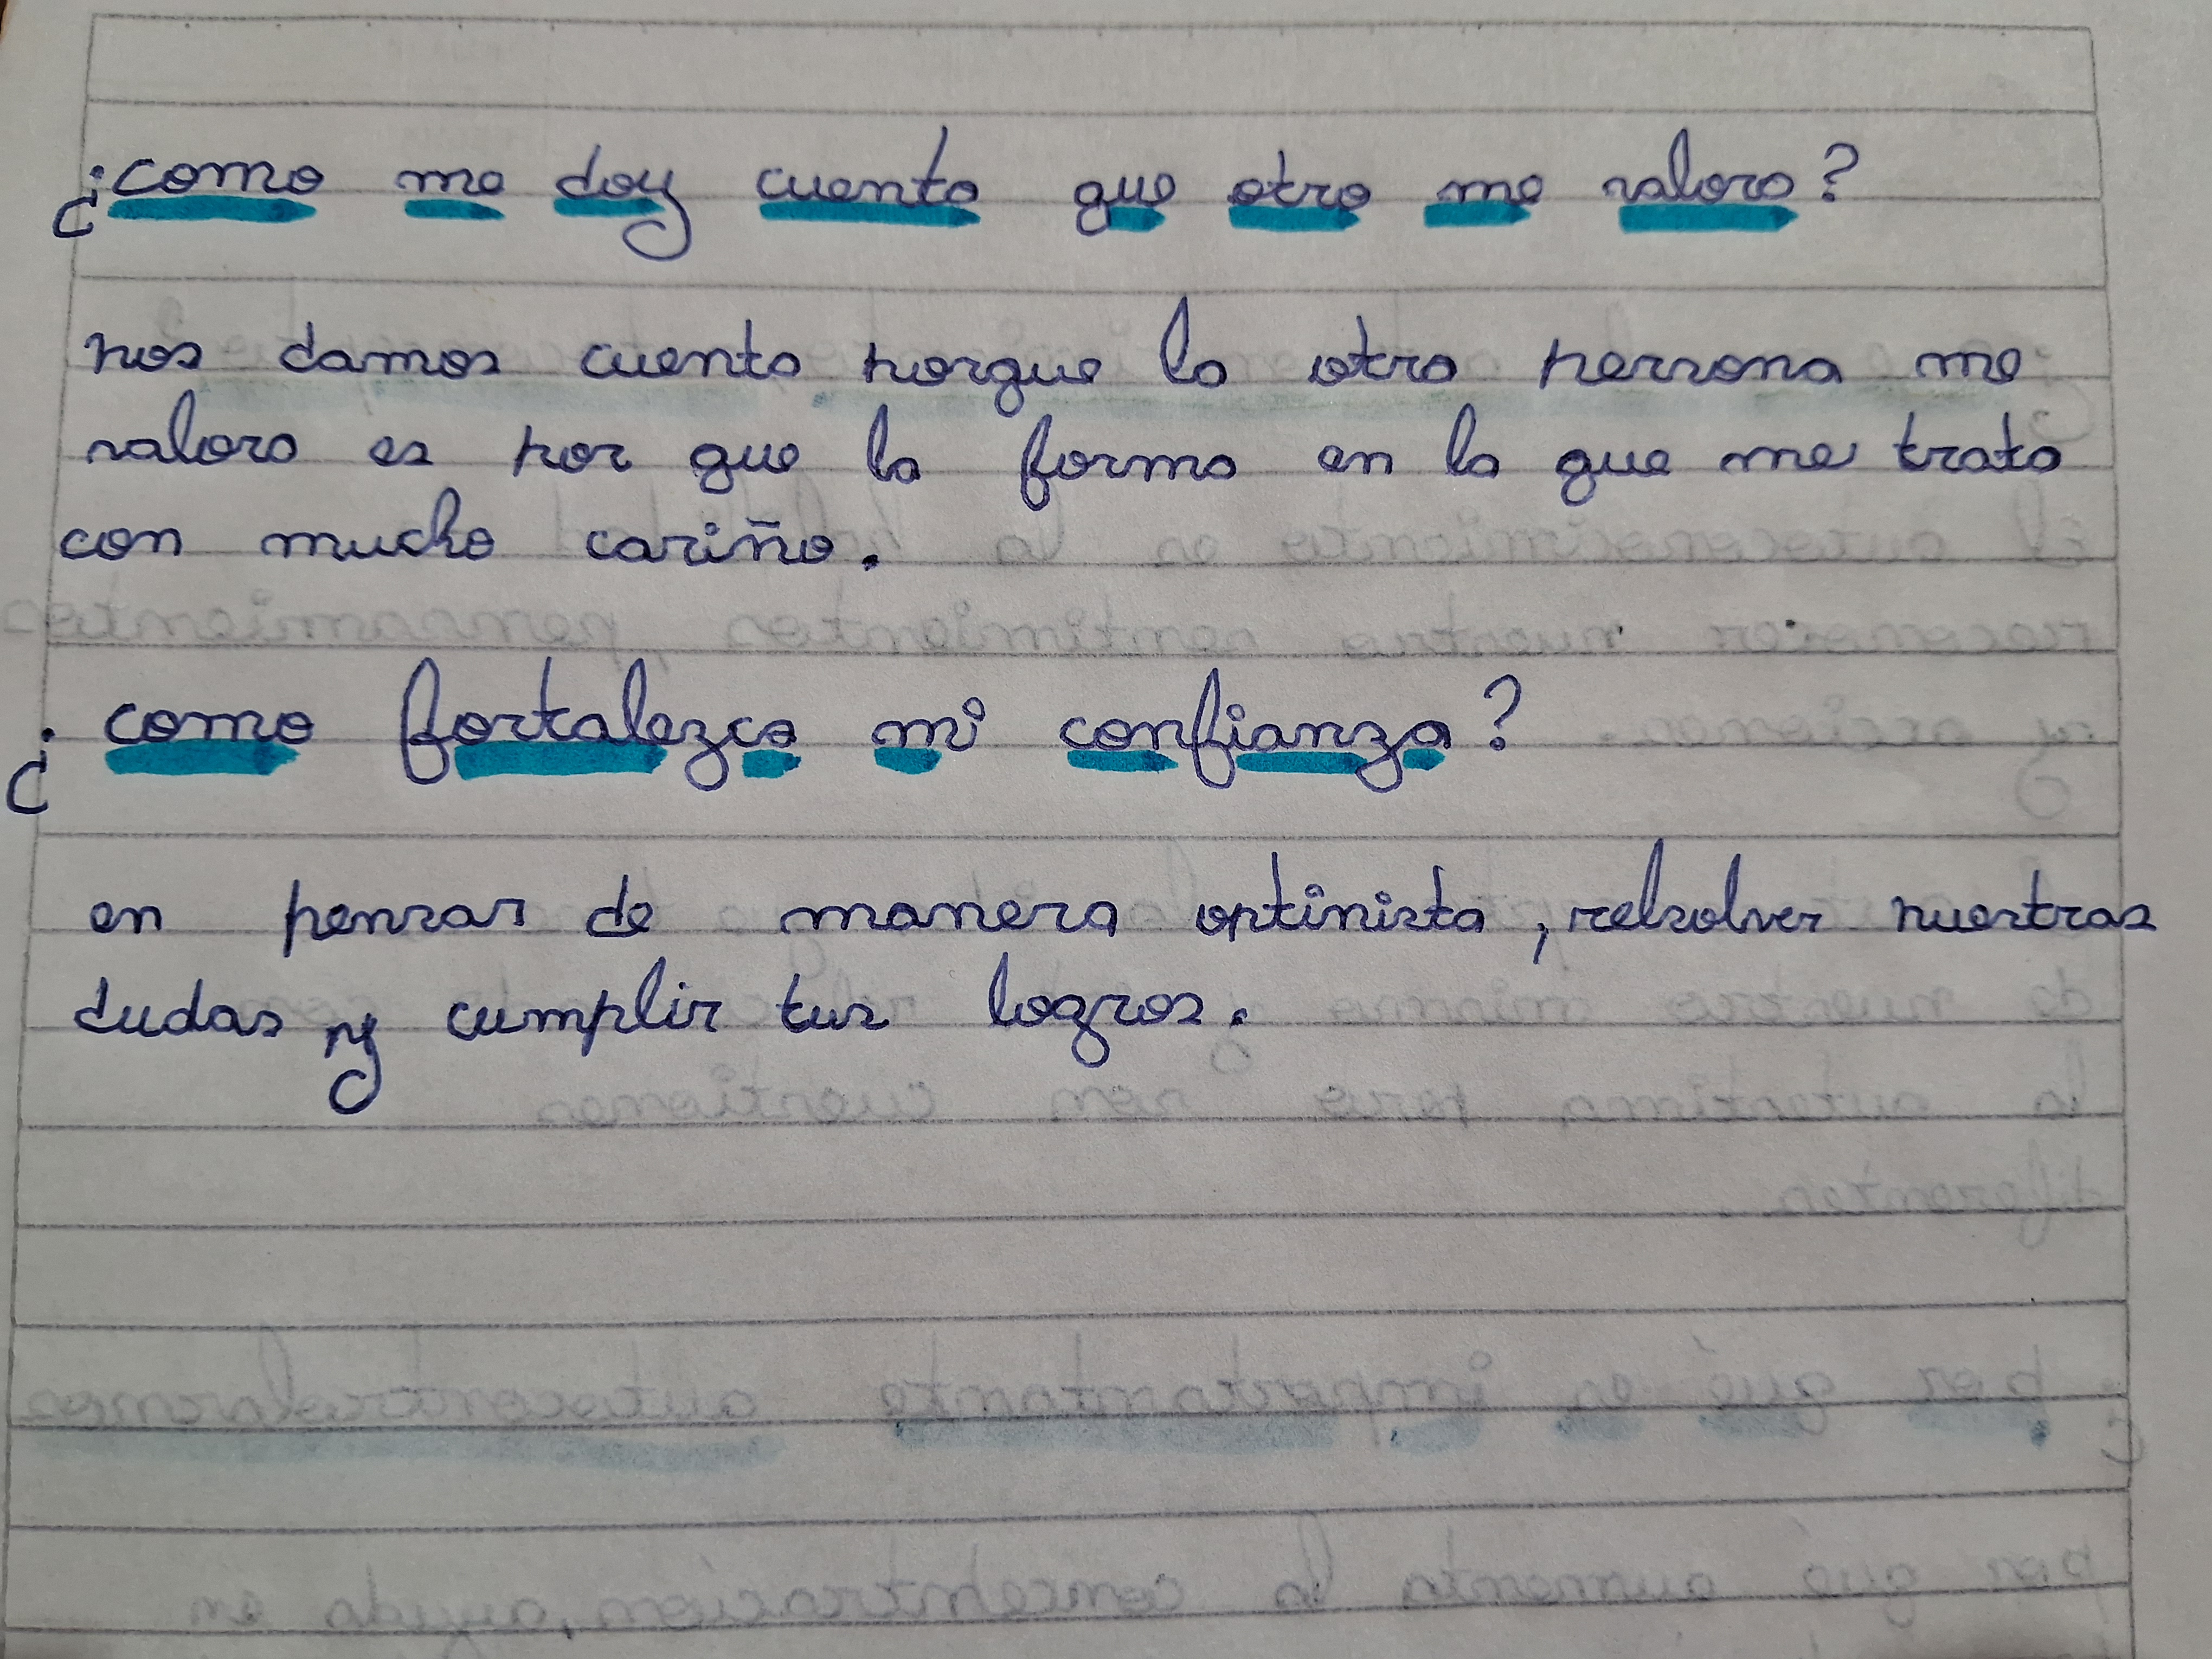 ¿como me doy cuenta que otro me valora?
nos damos cuenta porque la otra persona me
valora es por que la forma en la que me trata
con mucho cariño.
¿como fortalezco mi confianza?
en pensar de manera optinista, relsolver nuestras
dudas y cumplir tus logros.